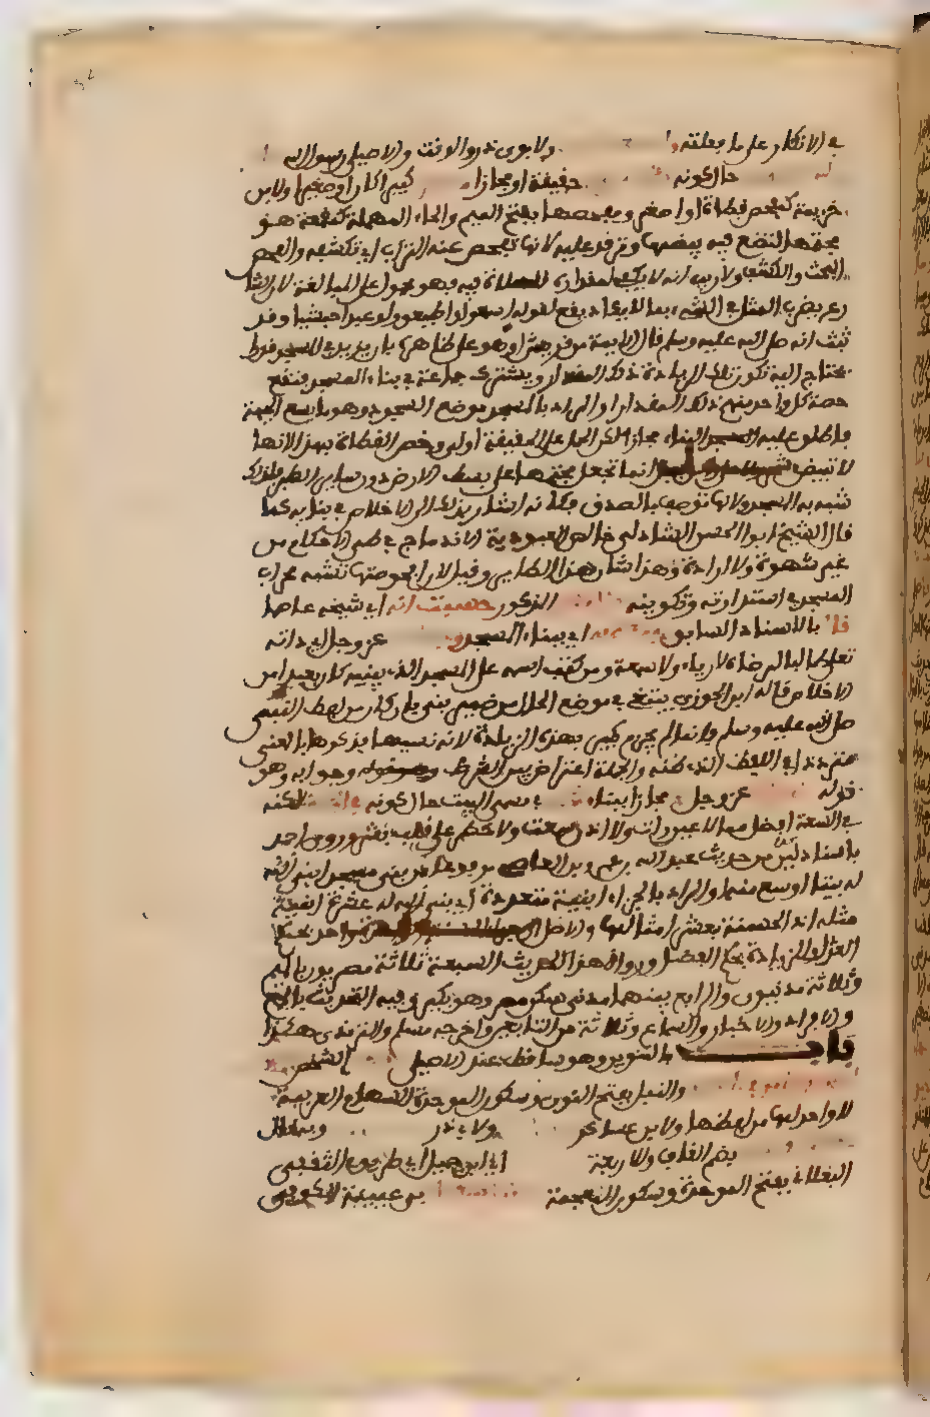 في الانكار على ما فعلته ولابوي ذر والوقت والاصيلي رسول الله
حال كونه حقيقة او مجازا كبيرا كان او صغيرا ولابن
خزيمة كمفحص قطاة او اصغر ومفحصها بفتح الميم والحاء المهملة كمقعد هو
مجثمها لتضع فيه بيضها وترقد عليه لانها تفحص عنه التراب اي تكشفه والفحص
البحث والكشف ولا ريب انه لا يكفي مقداره للصلاة فيه فهو محمول على المبالغة لان الشارع
يضرب المثل في الشيء بما لا يكاد يقع كقوله اسمعوا واطيعوا ولو عبدا حبشيا وقد
ثبت انه صلى الله عليه وسلم قال الايمة من قريش او هو على ظاهره بان يزيد في المسجد قدرا
يحتاج اليه تكون تلك الزيادة ذلك القدر او يشترك جماعة في بناء المسجد فتقع
حصة كل واحد منهم ذلك المقدار او المراد بالمسجد موضع السجود وهو ما يسع الجبهة
فاطلق عليه البناء مجازا لكن الحمل على الحقيقة اولى وخص القطاة بهذا لانها
لا تبيض انما تجعل مجثمها على بسيط الارض دون ساير الطير فلذلك
شبه به المسجد ولانها توصف بالصدق فكانه اشار بذلك الى الاخلاص في بنايه كما
قال الشيخ ابو الحسن الشاذلي خالص العبودية الاندماج في طي الاحكام من
غير شهوة ولا ارادة وهذا شان هذا الطاير وقيل لان افحوصها تشبه محراب
المسجد في استدارته وتكوينه المذكور حسبت انه اي شيخه عاصما
قال بالاسناد السابق اي ببناء المسجد عز وجل اي ذاته
تعلى طالبا لمرضاته لا رياء ولا سمعة ومن كتب اسمه على المسجد الذي يبنيه كان بعيدا من
الاخلاص قاله ابن الجوزي يبتغي في موضع الحال من ضمير بنى ان كان من لفظ النبي
صلى الله عليه وسلم وانما لم يجزم بكير بهذه الزيادة لانه نسيها فذكرها بالمعنى
مترددا في اللفظ الذي ظنه والجملة اعتراض بين الشرط وجوابه وهو
قوله عز وجل مجازا ببناء في مسمى البيت حال كونه لكنه
في السعة افضل مما لا عين رات ولا اذن سمعت ولا خطر على قلب بشر وروى احمد
باسناد لين من حديث عبد الله بن عمرو بن العاصي مرفوعا من بنى مسجدا بنى الله
له بيتا اوسع منه والمراد بالجزاء ابنية متعددة اي بنى الله له عشرة ابنية
مثله اذ الحسنة بعشر امثالها والاصل
العدل والزيادة بحكم الفضل ورواة هذا الحديث السبعة ثلاثة مصريون بالميم
وثلاثة مدنيون والرابع بينهما مدني سكن مصر وهو بكير وفيه التحديث بالجمع
والافراد والاخبار والسماع وثلاثة من التابعين واخرجه مسلم والترمذي هكذا
باب بالتنوين وهو ساقط عند الاصيلي الشخص
والنبل بفتح النون وسكون الموحدة السهام العربية
لا واحد لها من لفظها ولابن عساكر ولابي ذر
بضم القاف ولاربعة اي ابن جميل بن طريف الثقفي
البغلاني بفتح الموحدة وسكون المعجمة بن عيينة الكوفي